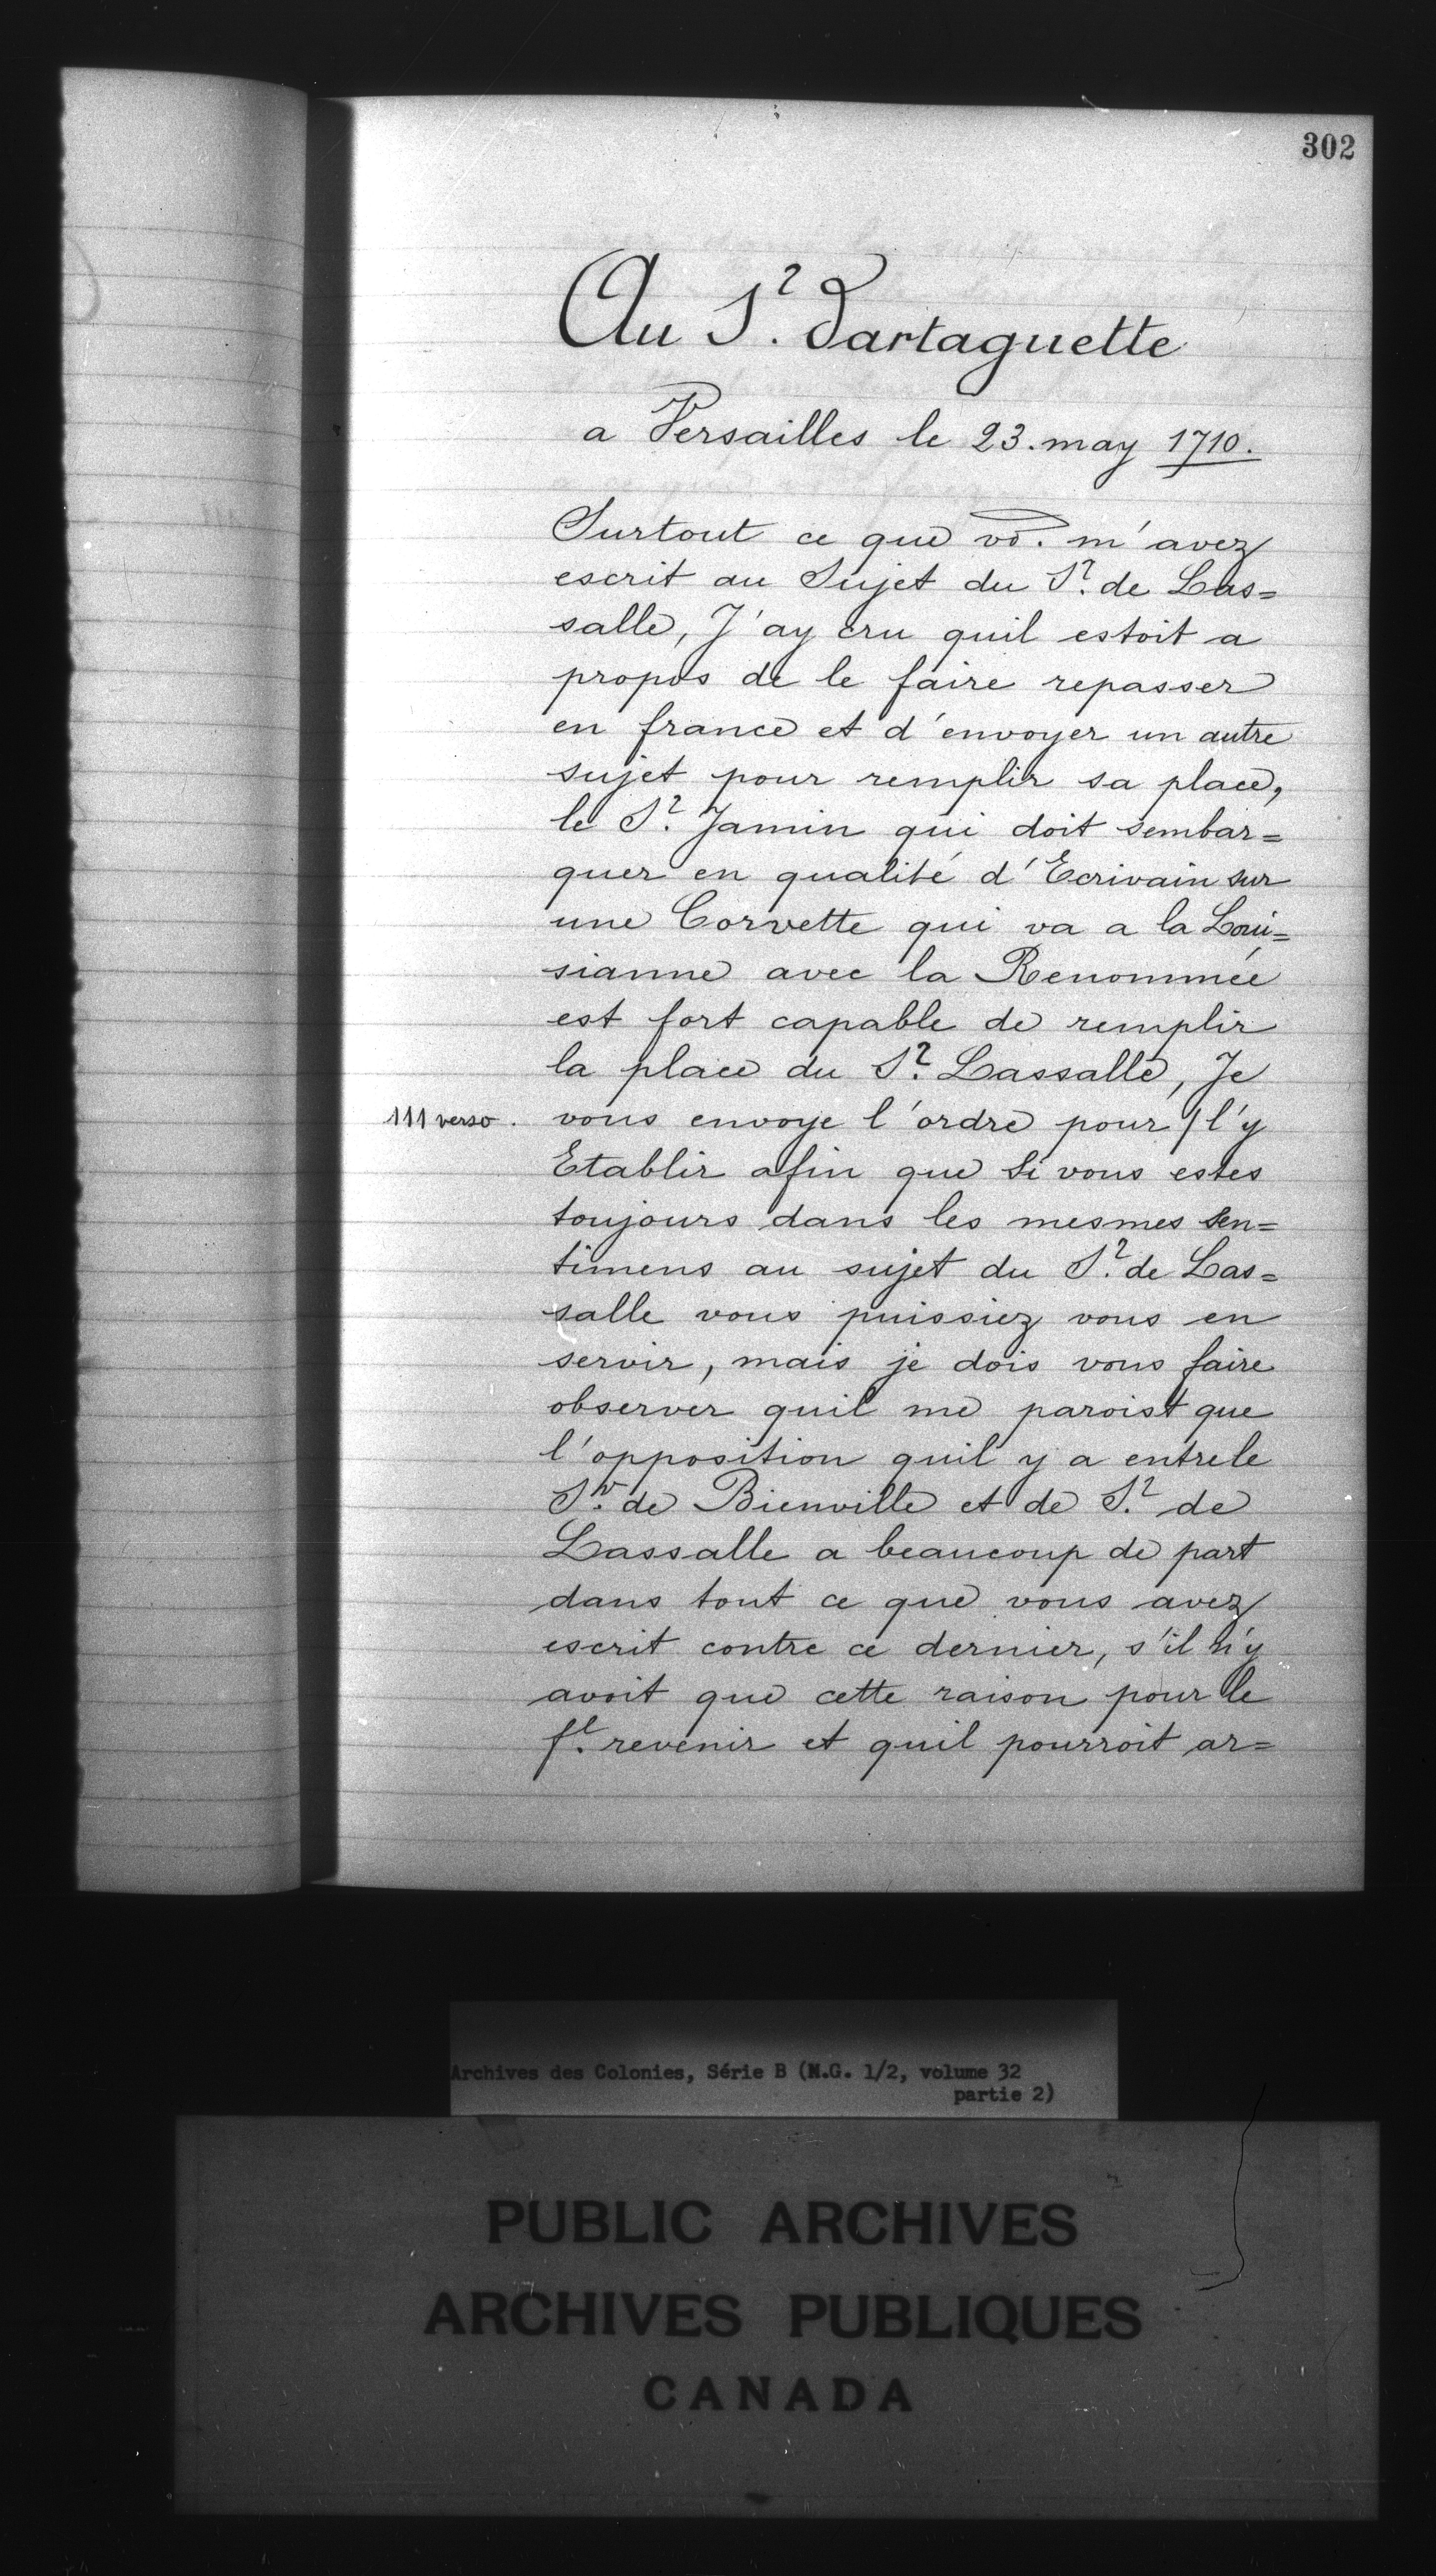 302
Au S.r Dartaguette
a Versailles le 23. may 1710.
Surtout ce que vo. m'avez
escrit au Sujet du S.r de Las=
salle, J'ay cru quil estoit a
propos de le faire repasser
en france et d'envoyer un autre
sujet pour remplir sa place,
le S.r Jamin qui doit sembar=
quer en qualité d'Ecrivain sur
une Corvette qui va a la Loui=
sianne avec la Renommée
est fort capable de remplir
la place du S.r Lassalle, Je
111 verso. vous envoye l'ordre pour / l'y
Etablir afin que Si vous estes
toujours dans les mesmes Sen=
timens au sujet du S.r de Las=
salle vous puissiez vous en
servir, mais je dois vous faire
observer quil me paroist que
l'opposition quil y a entre le
S.r de Bienville et de S.r de
Lassalle a beaucoup de part
dans tout ce que vous avez
escrit contre ce dernier, s'il n'y
avoit que cette raison pour le
f.e revenir et quil pourroit ar=
Archives des Colonies, Série B (M.G. 1/2, volume 32
partie 2)
PUBLIC ARCHIVES
ARCHIVES PUBLIQUES
CANADA